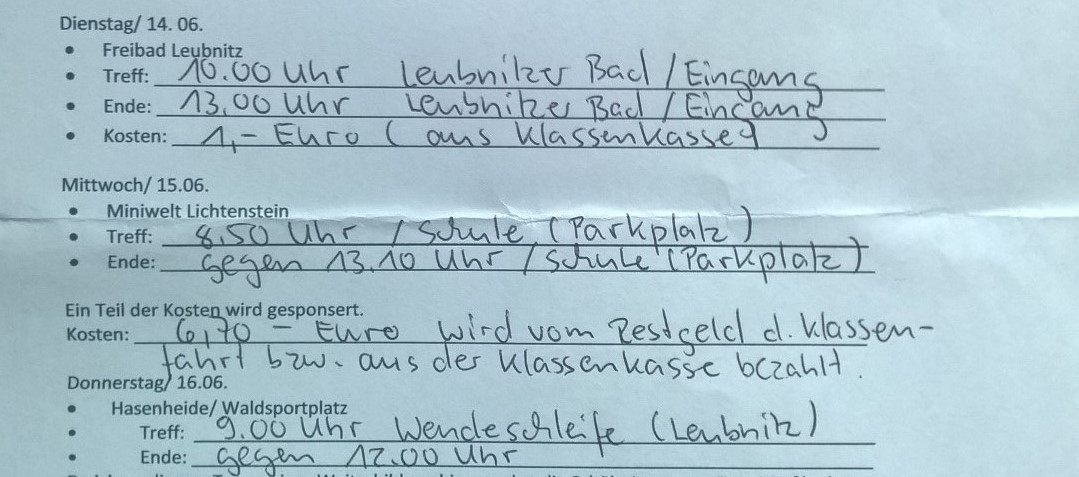 Dienstag/ 14. 06.
• Freibad Leubnitz
• Treff: 10.00 Uhr Leubnitzer Bad / Eingang
• Ende: 13.00 Uhr Leubnitzer Bad / Eingang
• Kosten: 1,- Euro (aus Klassenkasse)
Mittwoch/ 15.06.
• Miniwelt Lichtenstein
• Treff: 8.50 Uhr / Schule (Parkplatz)
• Ende: gegen 13.10 Uhr / Schule (Parkplatz)
Ein Teil der Kosten wird gesponsert.
Kosten: 6,70 - Euro wird vom Restgeld d. Klassen-
fahrt bzw. aus der Klassenkasse bezahlt.
Donnerstag/ 16.06.
• Hasenheide/ Waldsportplatz
• Treff: 9.00 Uhr Wendeschleife (Leubnitz)
• Ende: gegen 12.00 Uhr